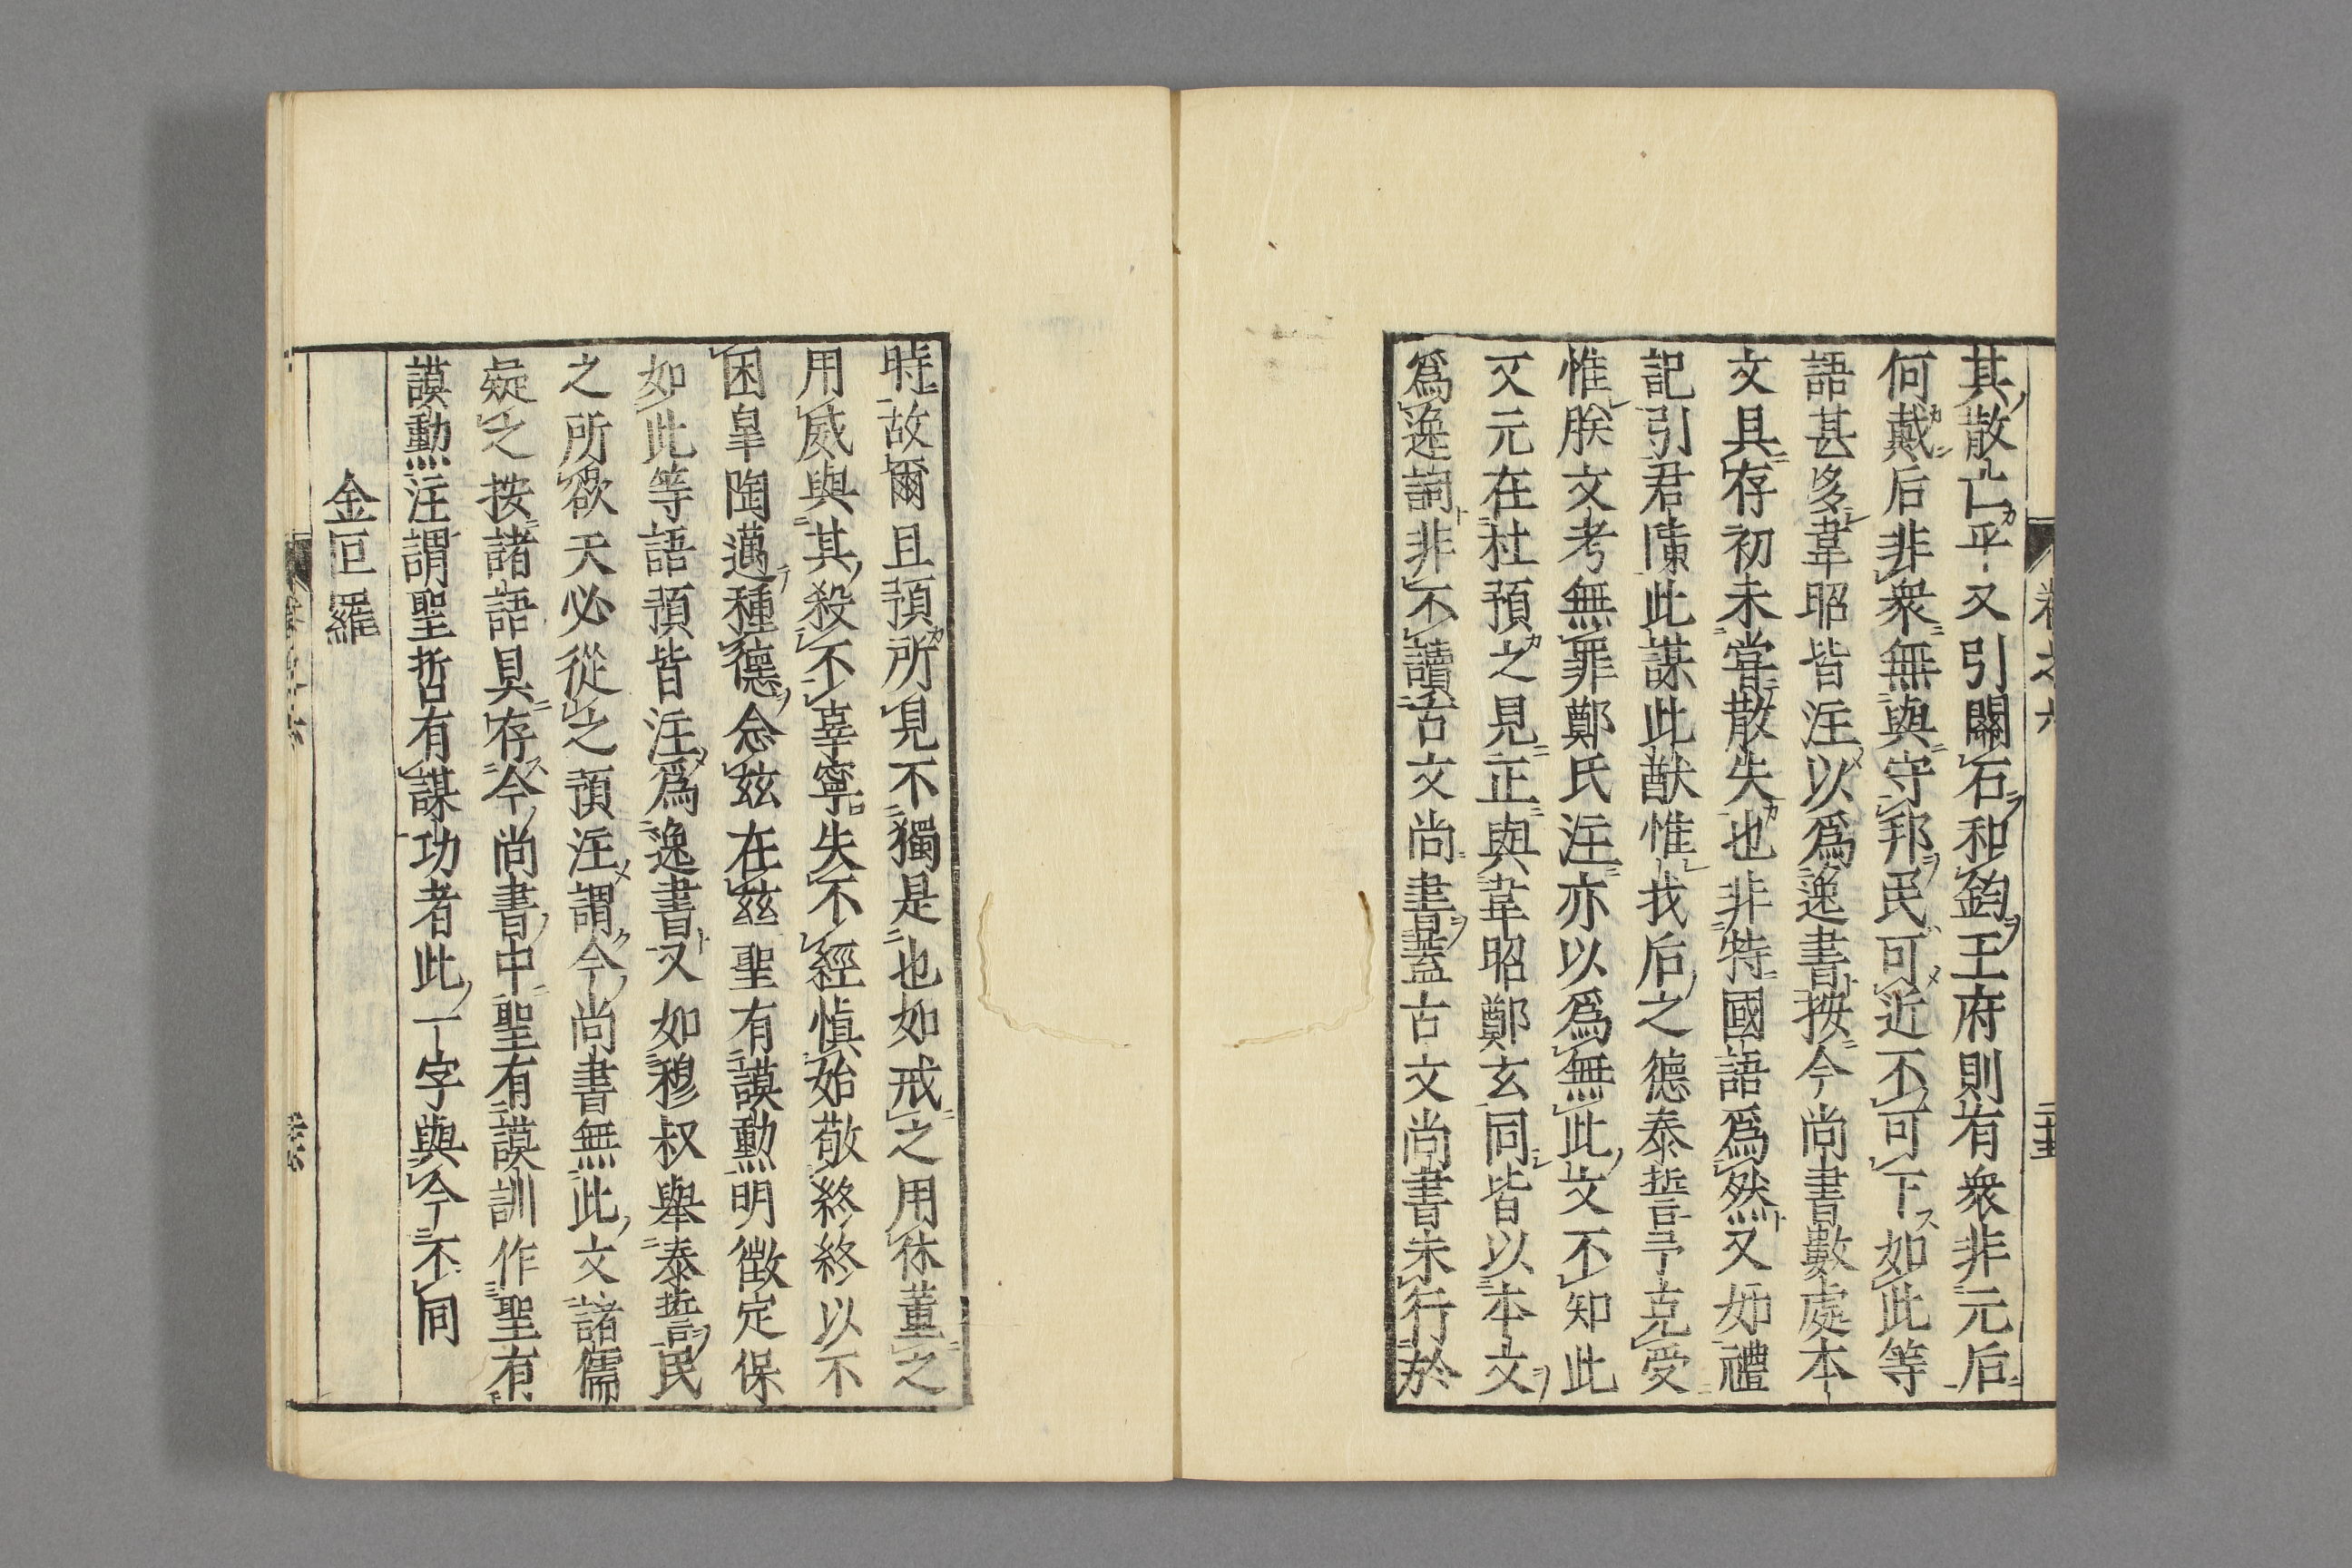 其散亡乎又引關石和鈞王府則有衆非元后
何戴后非衆無與守邦民可近不可下如此等
語甚多韋昭皆注以爲逸書按今尚書數處本
文具存初未嘗散失也非特國語爲然又如禮
記引君陳此謀此猷惟我后之德泰誓予克受
惟朕文考無罪鄭氏注亦以爲無此文不知此
文元在杜預之見正與韋昭鄭玄同皆以本文
爲逸詞非不讀古文尚書蓋古文尚書未行於
時故爾且預所見不獨是也如戒之用休董之
用威與其殺不辜寧失不經愼始敬終終以不
困皐陶邁種德念兹在茲聖有謨勲明徴定保
如此等語預皆注爲逸書又如穆叔舉泰誓民
之所欲天必從之預注謂今尚書無此文諸儒
疑之按諸語具存今尚書中聖有謨訓作聖有
謨勲注謂聖哲有謀功者此一字與今不同
金叵羅